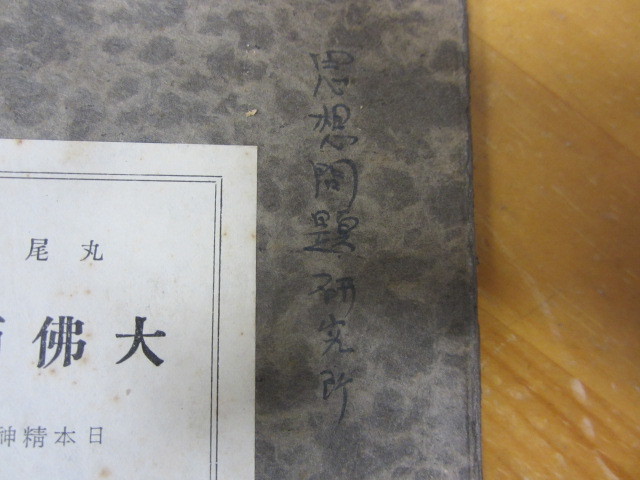 思想問題研究所
丸尾
大佛
日本精神